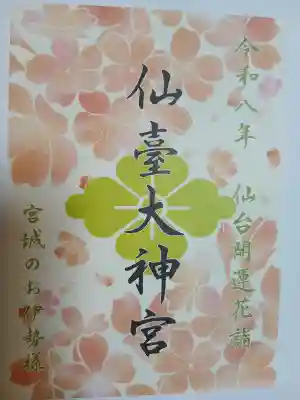 令和八年 仙台開運花詣
仙臺大神宮
宮城のお伊勢様